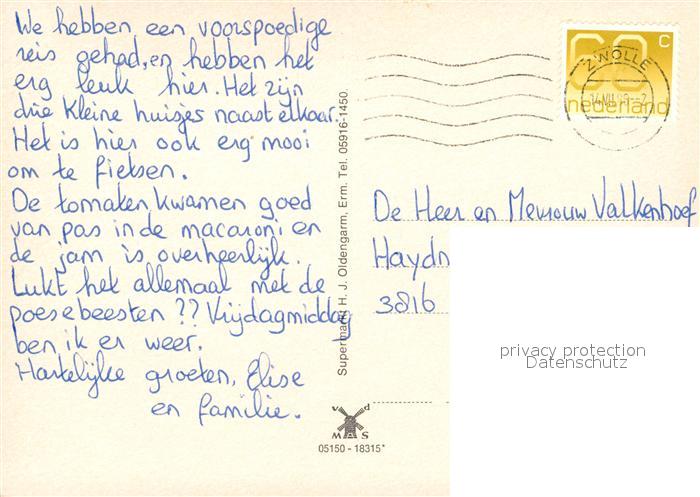 We hebben een voorspoedige
reis gehad, en hebben het
erg leuk hier. Het zijn
drie kleine huisjes naast elkaar.
Het is hier ook erg mooi
om te fietsen.
De tomaten kwamen goed
van pas in de macaroni en
de jam is overheerlijk.
Lukt het allemaal met de
poesebeesten ?? Vrijdagmiddag
ben ik er weer.
Hartelijke groeten, Elise
en familie.
Supermarkt H. J. Oldengarm, Erm. Tel. 05916-1450.
v d
W M S
05150 - 18315*
60 c
nederland
ZWOLLE
De Heer en Mevrouw Valkenhoef
Haydn
3816
privacy protection
Datenschutz